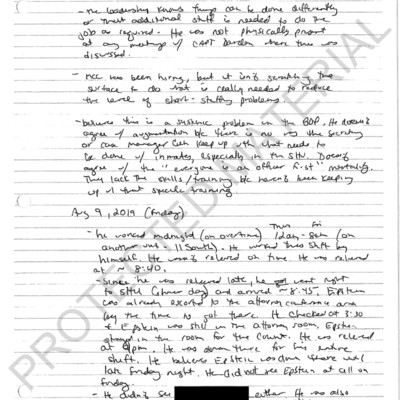 - The leadership knows things can be done differently
or that additional staff is needed to do the
job as required. He was not physically present
at any meetings w/ CAPT Darden where this was
discussed.
- MCC has been hiring, but it isn't scratching the
surface to do what is really needed to reduce
the level of short-staffing problems.
- believes this is a systemic problem in the BOP. He doesn't
agree w/ augmentation bc there is no way the secretary
or case manager can keep up with what needs to
be done w/ inmates, especially in the SHU. Doesn't
agree w/ the "everyone is an officer first" mentality.
They lack the skills/training. He haven't been keeping
up w/ that specific training
Aug 9, 2019 (Friday)
Thurs Fri
- he worked midnight (on overtime) 12am - 8am (on
another unit - 11 South). He worked this shift by
himself. He wasn't relieved on time. He was relieved
at ~ 8:40.
- Since he was relieved late, he went right
to SHU (same day) and arrived ~ 8:45. Epstein
was already escorted to the attorney conference area
by the time he got there. He checked at 3:30
& Epstein was still in the attorney room. Epstein
stayed in the room for the count. He was relieved
at 4pm. He was down there for his entire
shift. He believes Epstein was down there until
late Friday night. He did not see Epstein at all on
Friday.
- He didn't see either. He was also
PROTECTED MATERIAL